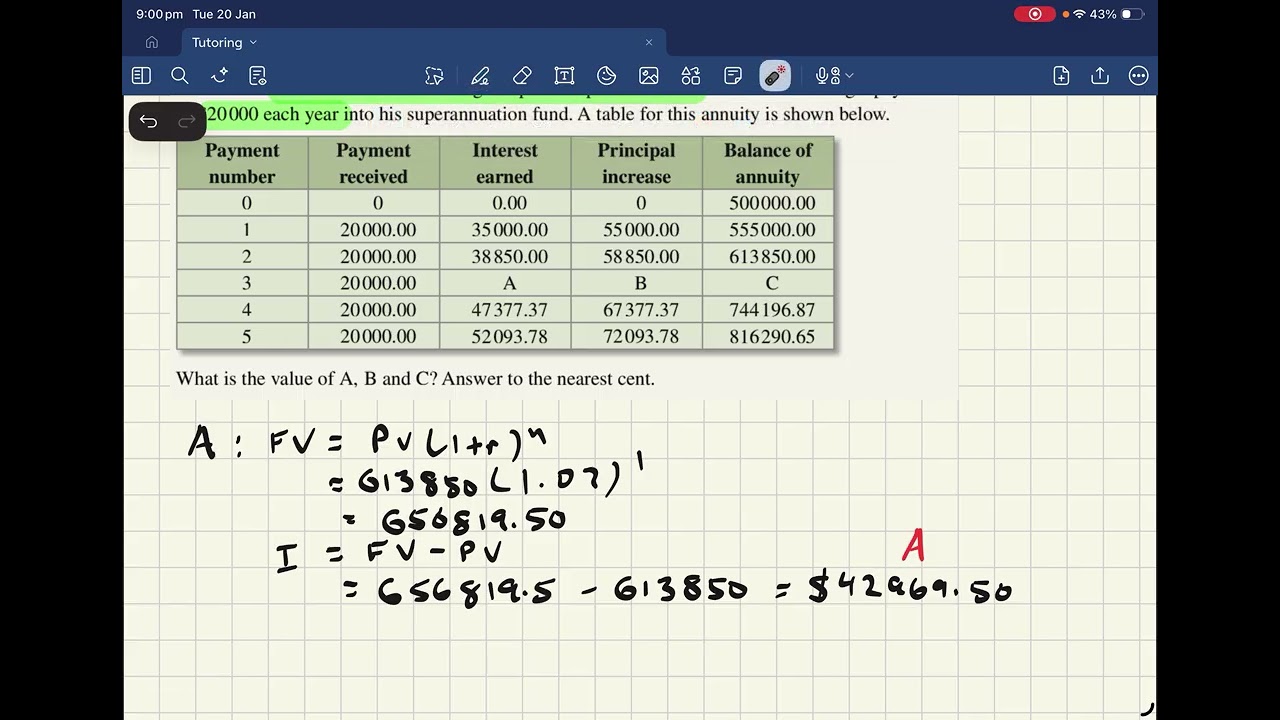 9:00 pm Tue 20 Jan 43%
Tutoring
20000 each year into his superannuation fund. A table for this annuity is shown below.
Payment number Payment received Interest earned Principal increase Balance of annuity
0 0 0.00 0 500000.00
1 20000.00 35000.00 55000.00 555000.00
2 20000.00 38850.00 58850.00 613850.00
3 20000.00 A B C
4 20000.00 47377.37 67377.37 744196.87
5 20000.00 52093.78 72093.78 816290.65
What is the value of A, B and C? Answer to the nearest cent.
A : FV = PV(1+r)^n
= 613850(1.07)^1
= 656819.50
I = FV - PV
A
= 656819.5 - 613850 = $42969.50